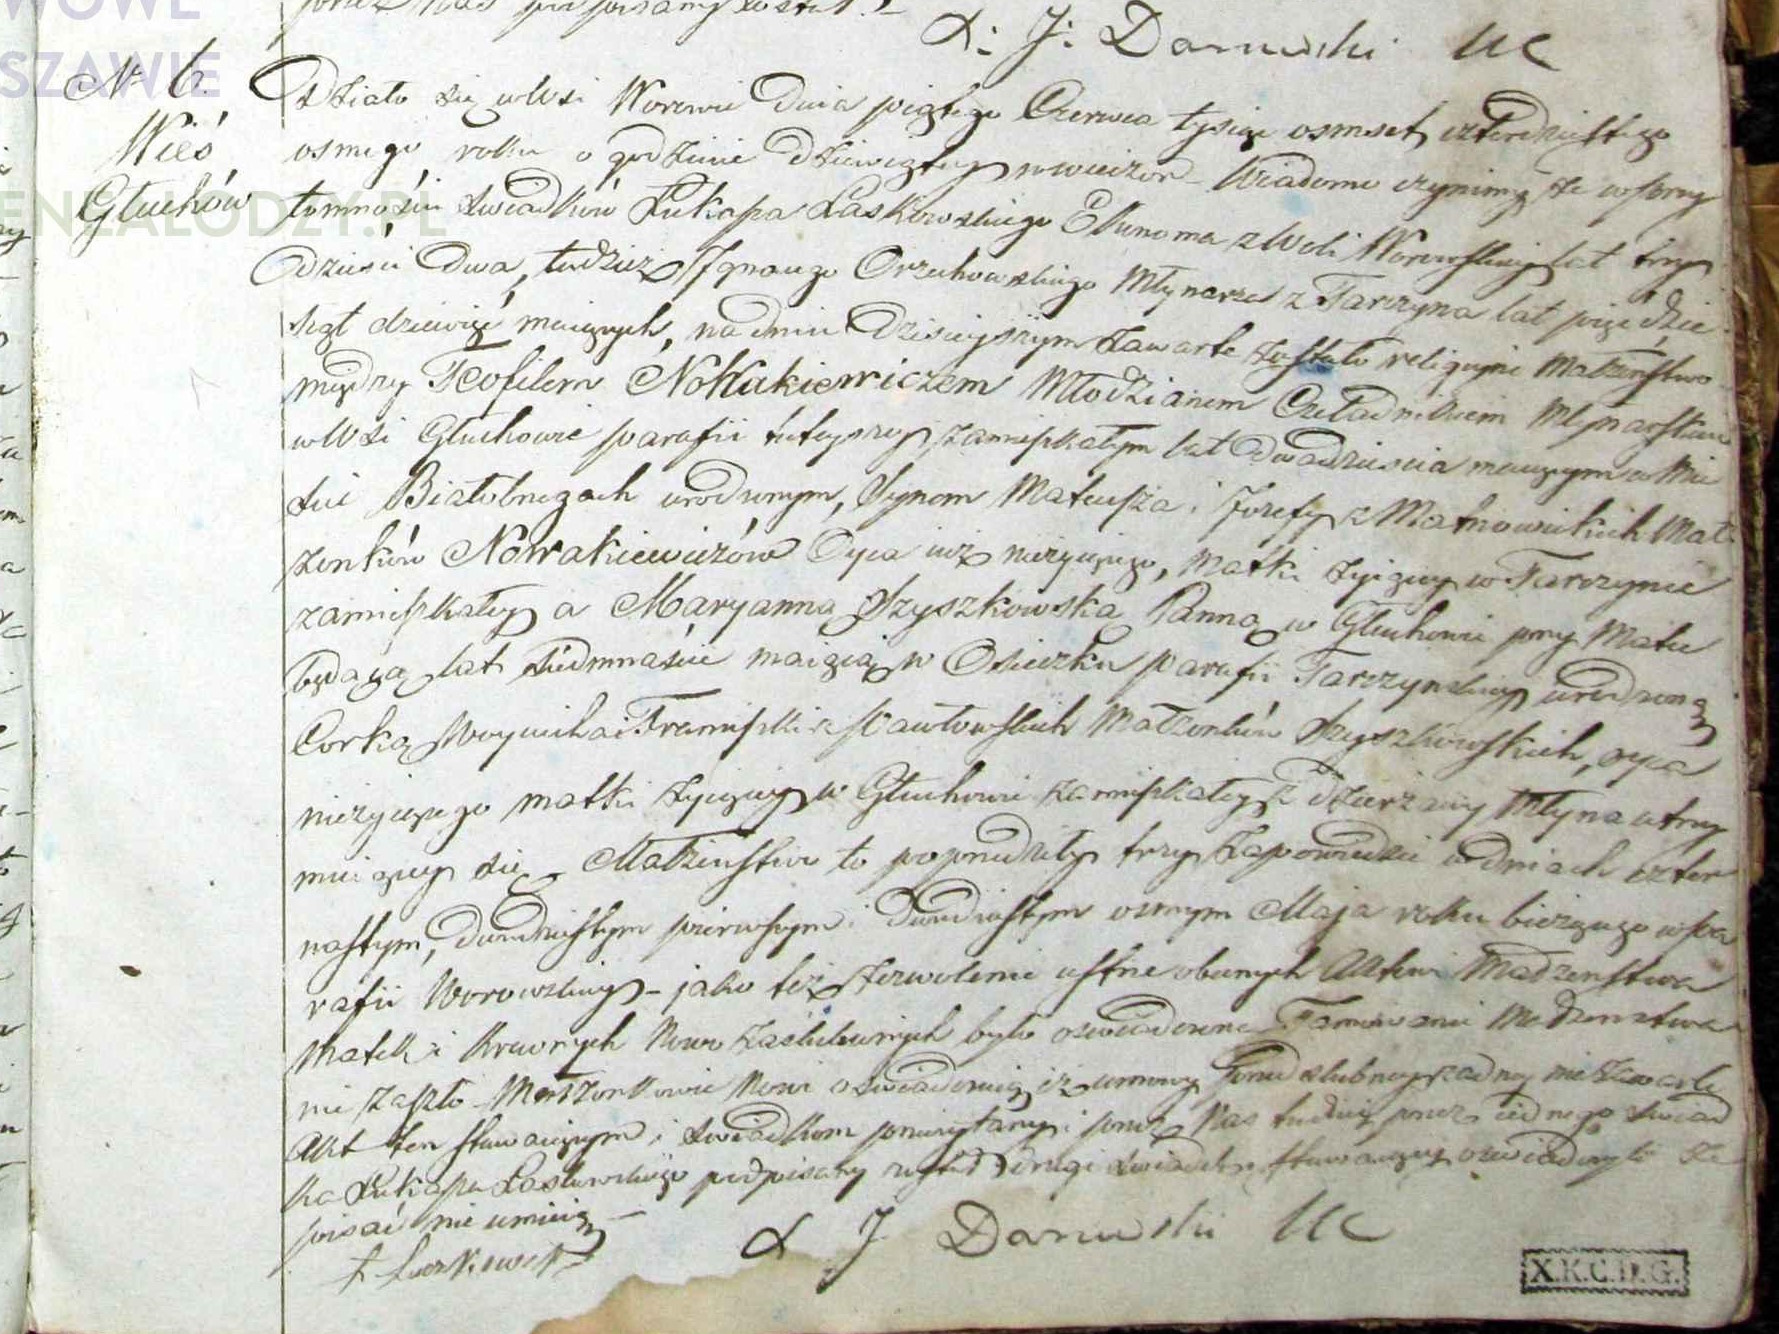 przez Nas podpisany został. –
X: J: Danuwski UC
WOWE
SZAWIE
ENEALODZY.PL
N 6.
Wieś
Głuchów
Działo się w Wsi Worowie Dnia piątego Czerwca tysiąc osmset czterdziestego
osmego roku o godzinie dziewiątey wwieczor – Wiadomo czynimy że wprzy
tomności świadków Łukasza Laskowskiego Ekonoma z Woli Worowskiey lat trzy
dzieści dwa, tudzież Ignacego Orzechowskiego Młynarza z Tarczyna lat pięćdzie
siąt dziewięć maiących, na dniu dzisieyszym zawarte zostało religijne Małżeństwo
między Teofilem Nowakiewiczem Młodzianem Czeladnikiem Młynarskim
w Wsi Głuchowie parafii tuteyszey zamieszkałym lat dwadzieścia maiącym w Mie
ście Białobrzegach urodzonym, Synem Mateusza i Józefy z Małż
żonków Nowakiewiczów Oyca iuż nieżyiącego, Matki żyiącey w Tarczynie
zamieszkałey a Maryanną Szyszkowską Panną w Głuchowie przy Matce
będącą lat siedmnaście maiącą w Osieczku parafii Tarczyńskiey urodzoną
Corką Woyciecha i Franciszki z Pawłowskich Małżonków Szyszkowskich, oyca
nieżyiącego matki żyiącey w Głuchowie zamieszkałey z dzierżawy Młyna utrzy
muiącey się – Małżeństwo to poprzedziły trzy Zapowiedzie w dniach czter
nastym, dwudziestym pierwszym i dwudziestym osmym Maja roku bieżącego wpa
rafii Worowskiey – jako też zezwolenie ustne obecnych Aktowi Małżeństwa
Matek i Krewnych Nowo Zaślubionych było oświadczone Tamowanie Małżeństwa
nie zaszło Małżonkowie Nowi oświadczaią iż umowy przedślubney żadney nie zawarli
Akt ten stawaiącym i świadkom przeczytany i przez Nas tudzież przez iednego świad
ka Łukasza Laskowskiego podpisany został drugi świadek i stawaiący oświadczyli że
pisać nie umieią –
X J Danuwski UC
Ł Laskowski
X.K.C.D.G.